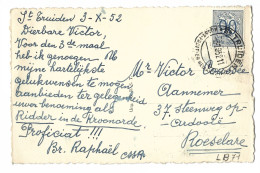 St Truiden 3-X-52
Dierbare Victor,
Voor den 3de maal
heb ik genoegen U
mijne hartelijkste
gelukwensen te mogen
aanbieden ter gelegenheid
uwer benoeming als
Ridder in de Kroonorde.
Proficiat !!!
Br. Raphaël
Mr Victor
Aannemer
37 Steenweg op
Ardooie
Roeselare